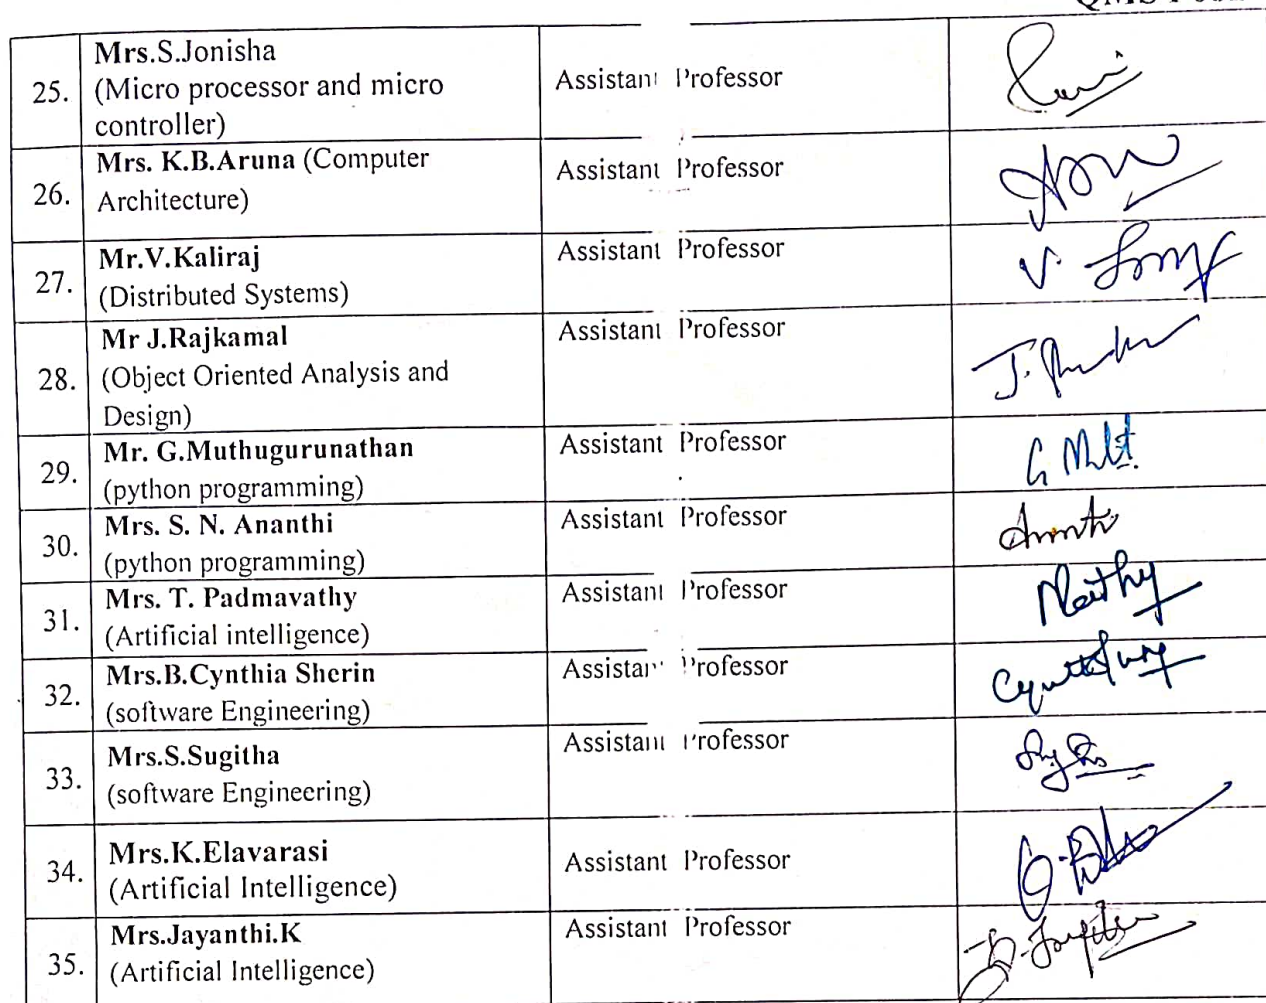 25.
Mrs.S.Jonisha
(Micro processor and micro
controller)
Assistant Professor
26.
Mrs. K.B.Aruna (Computer
Architecture)
Assistant Professor
27.
Mr.V.Kaliraj
(Distributed Systems)
Assistant Professor
V.
28.
Mr J.Rajkamal
(Object Oriented Analysis and
Design)
Assistant Professor
J.
29.
Mr. G.Muthugurunathan
(python programming)
Assistant Professor
G
30.
Mrs. S. N. Ananthi
(python programming)
Assistant Professor
31.
Mrs. T. Padmavathy
(Artificial intelligence)
Assistant Professor
32.
Mrs.B.Cynthia Sherin
(software Engineering)
Assistant Professor
33.
Mrs.S.Sugitha
(software Engineering)
Assistant Professor
34.
Mrs.K.Elavarasi
(Artificial Intelligence)
Assistant Professor
35.
Mrs.Jayanthi.K
(Artificial Intelligence)
Assistant Professor